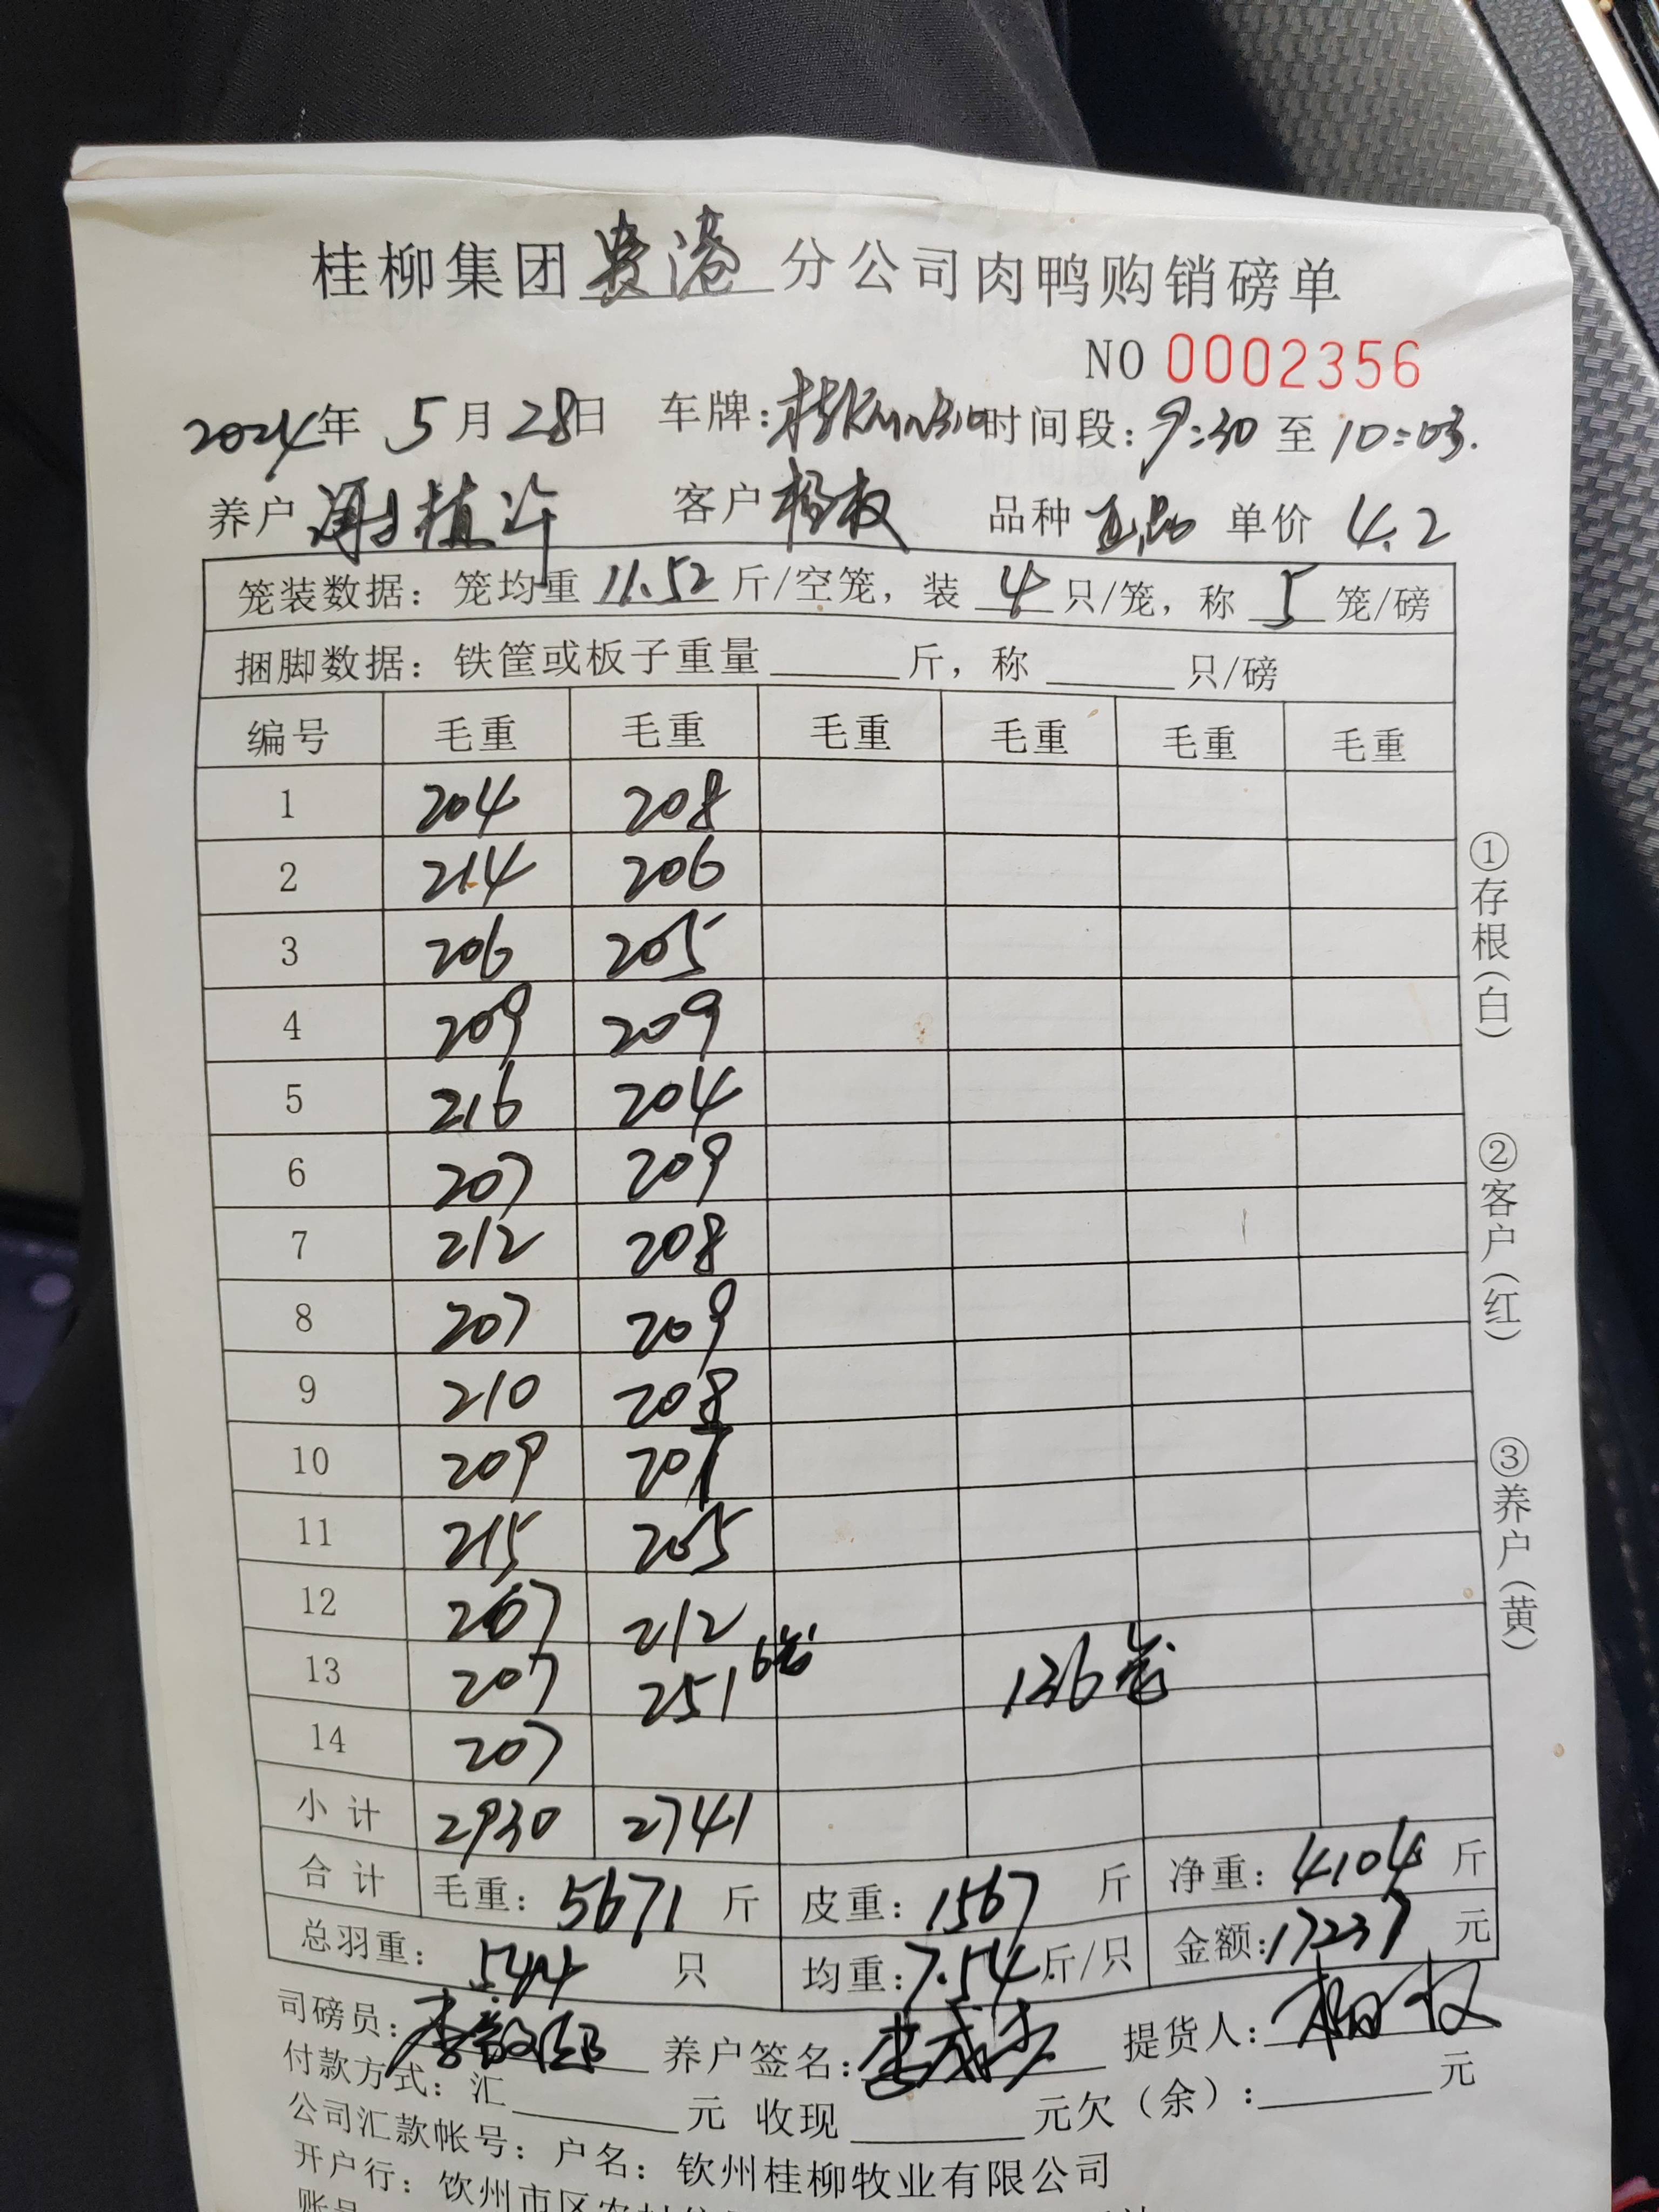 桂柳集团贵港分公司肉鸭购销磅单
NO 0002356
2024年 5月28日 车牌: 时间段: 9:30 至 10:03.
养户 谢植许 客户 杨权 品种 正品 单价 4.2
笼装数据: 笼均重 11.52 斤/空笼, 装 4 只/笼, 称 5 笼/磅
捆脚数据: 铁筐或板子重量______斤, 称______只/磅
编号 毛重 毛重 毛重 毛重 毛重 毛重
1 204 208
2 214 206
3 206 205
4 209 209
5 216 204
6 207 209
7 212 208
8 207 209
9 210 208
10 209 207
11 215 205
12 207 212
13 207 251 6笼 136笼
14 207
小计 2930 2741
合计 毛重: 5671 斤 皮重: 1567 斤 净重: 4104 斤
总羽重: 544 只 均重: 7.54 斤/只 金额: 17237 元
司磅员: 养户签名: 提货人: 杨权
付款方式: 汇______元 收现______元欠(余):______元
公司汇款帐号: 户名: 钦州桂柳牧业有限公司
开户行: 钦州市区农村
账号
①存根(白)
②客户(红)
③养户(黄)